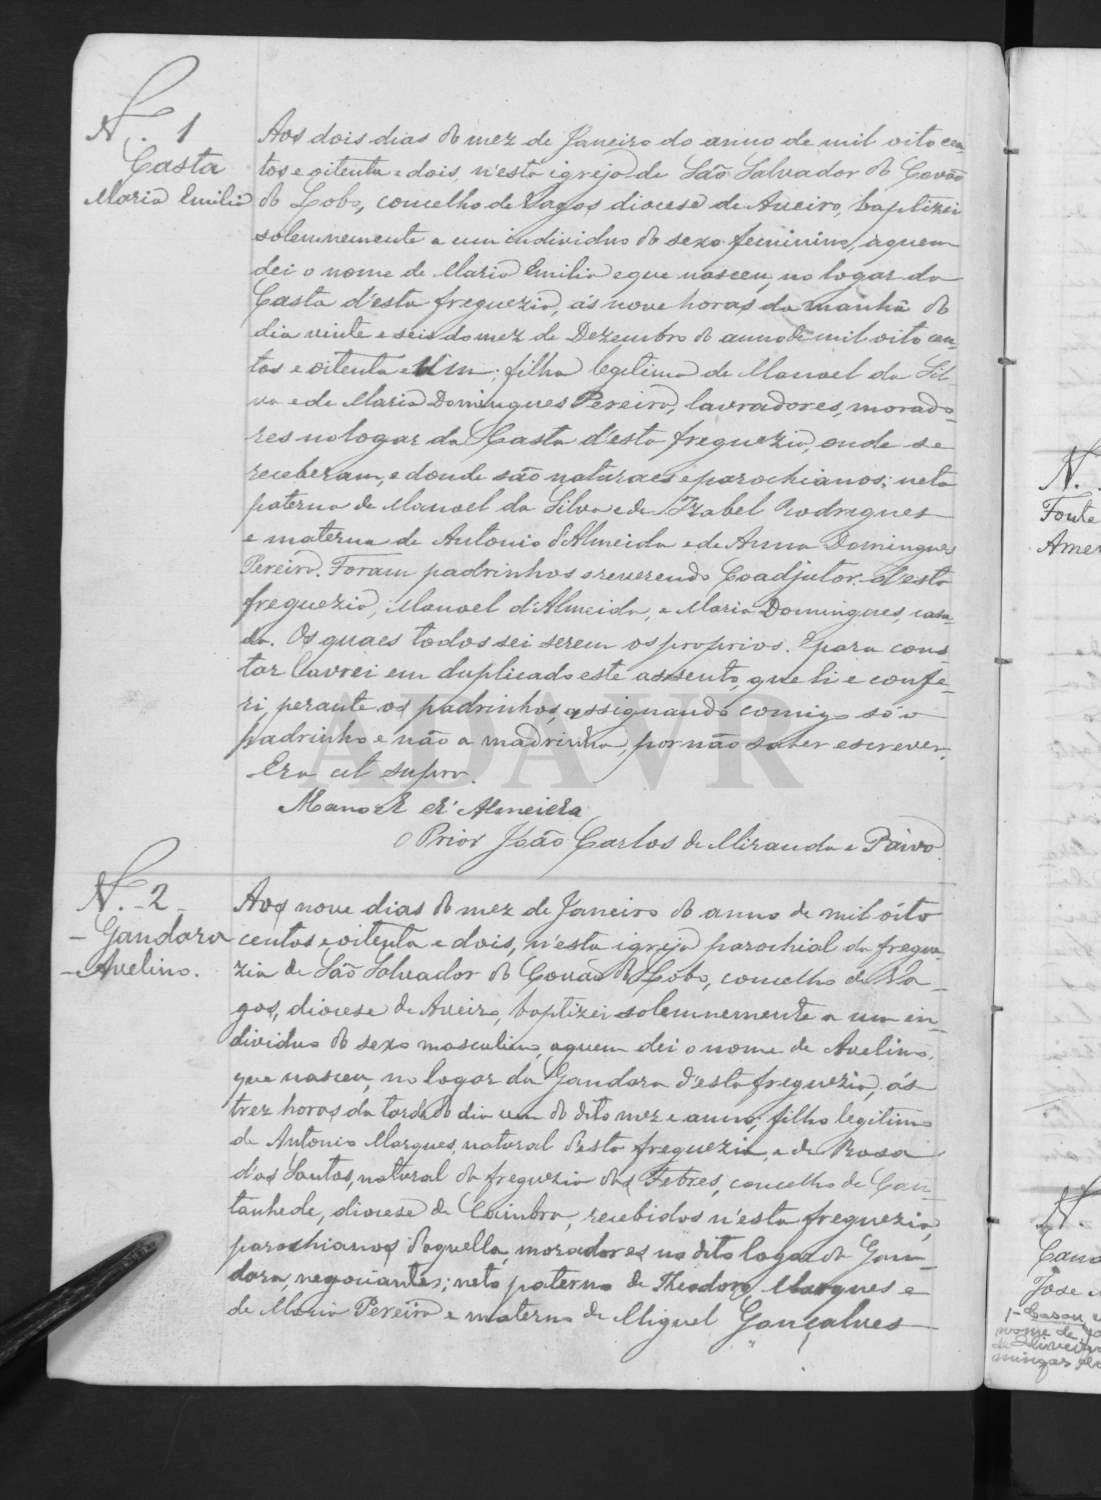 N.º 1
Casta
Maria Emilia
Aos dois dias do mez de Janeiro do anno de mil oito cen-
tos e oitenta e dois, n'esta igreja de São Salvador do Covão
do Lobo, concelho de Vagos, diocese de Aveiro, baptizei
solemnemente a um individuo do sexo feminino, a quem
dei o nome de Maria Emilia e que nasceu, no logar da
Casta d'esta freguezia, ás nove horas da manhã do
dia vinte e seis do mez de Dezembro do anno de mil oito cen-
tos e oitenta e um; filha legitima de Manoel da Sil-
va e de Maria Domingues Pereira, lavradores, morado-
res no logar da Casta d'esta freguezia, onde se
receberam, e donde são naturaes e parochianos; neta
paterna de Manoel da Silva e de Izabel Rodrigues
e materna de Antonio d'Almeida e de Anna Domingues
Pereira. Foram padrinhos o reverendo Coadjutor d'esta
freguezia, Manoel d'Almeida, e Maria Domingues, casa-
da. Os quaes todos sei serem os proprios. E para cons-
tar lavrei em duplicado este assento, que li e confe-
ri perante os padrinhos, assignando comigo só o
padrinho e não a madrinha, por não saber escrever.
Era ut supra.
Manoel d'Almeida
O Prior João Carlos de Miranda e Paiva.
N.º 2
Gandara
Avelino.
Aos nove dias do mez de Janeiro do anno de mil oito
centos e oitenta e dois, n'esta igreja parochial da fregue-
zia de São Salvador do Covão do Lobo, concelho de Va-
gos, diocese de Aveiro, baptizei solemnemente a um in-
dividuo do sexo masculino, a quem dei o nome de Avelino,
que nasceu, no logar da Gandara d'esta freguezia, ás
trez horas da tarde do dia um do dito mez e anno; filho legitimo
de Antonio Marques, natural d'esta freguezia, e de Rosa
d'os Santos, natural da freguezia das Febres, concelho de Can-
tanhede, diocese de Coimbra, recebidos n'esta freguezia,
parochianos daquella, moradores no dito logar da Gan-
dara, negociantes; neto paterno de Theodoro Marques e
de Maria Pereira e materno de Miguel Gonçalves
N.
Fonte
N.
Jose
1-Casou
nome de
ADAVR